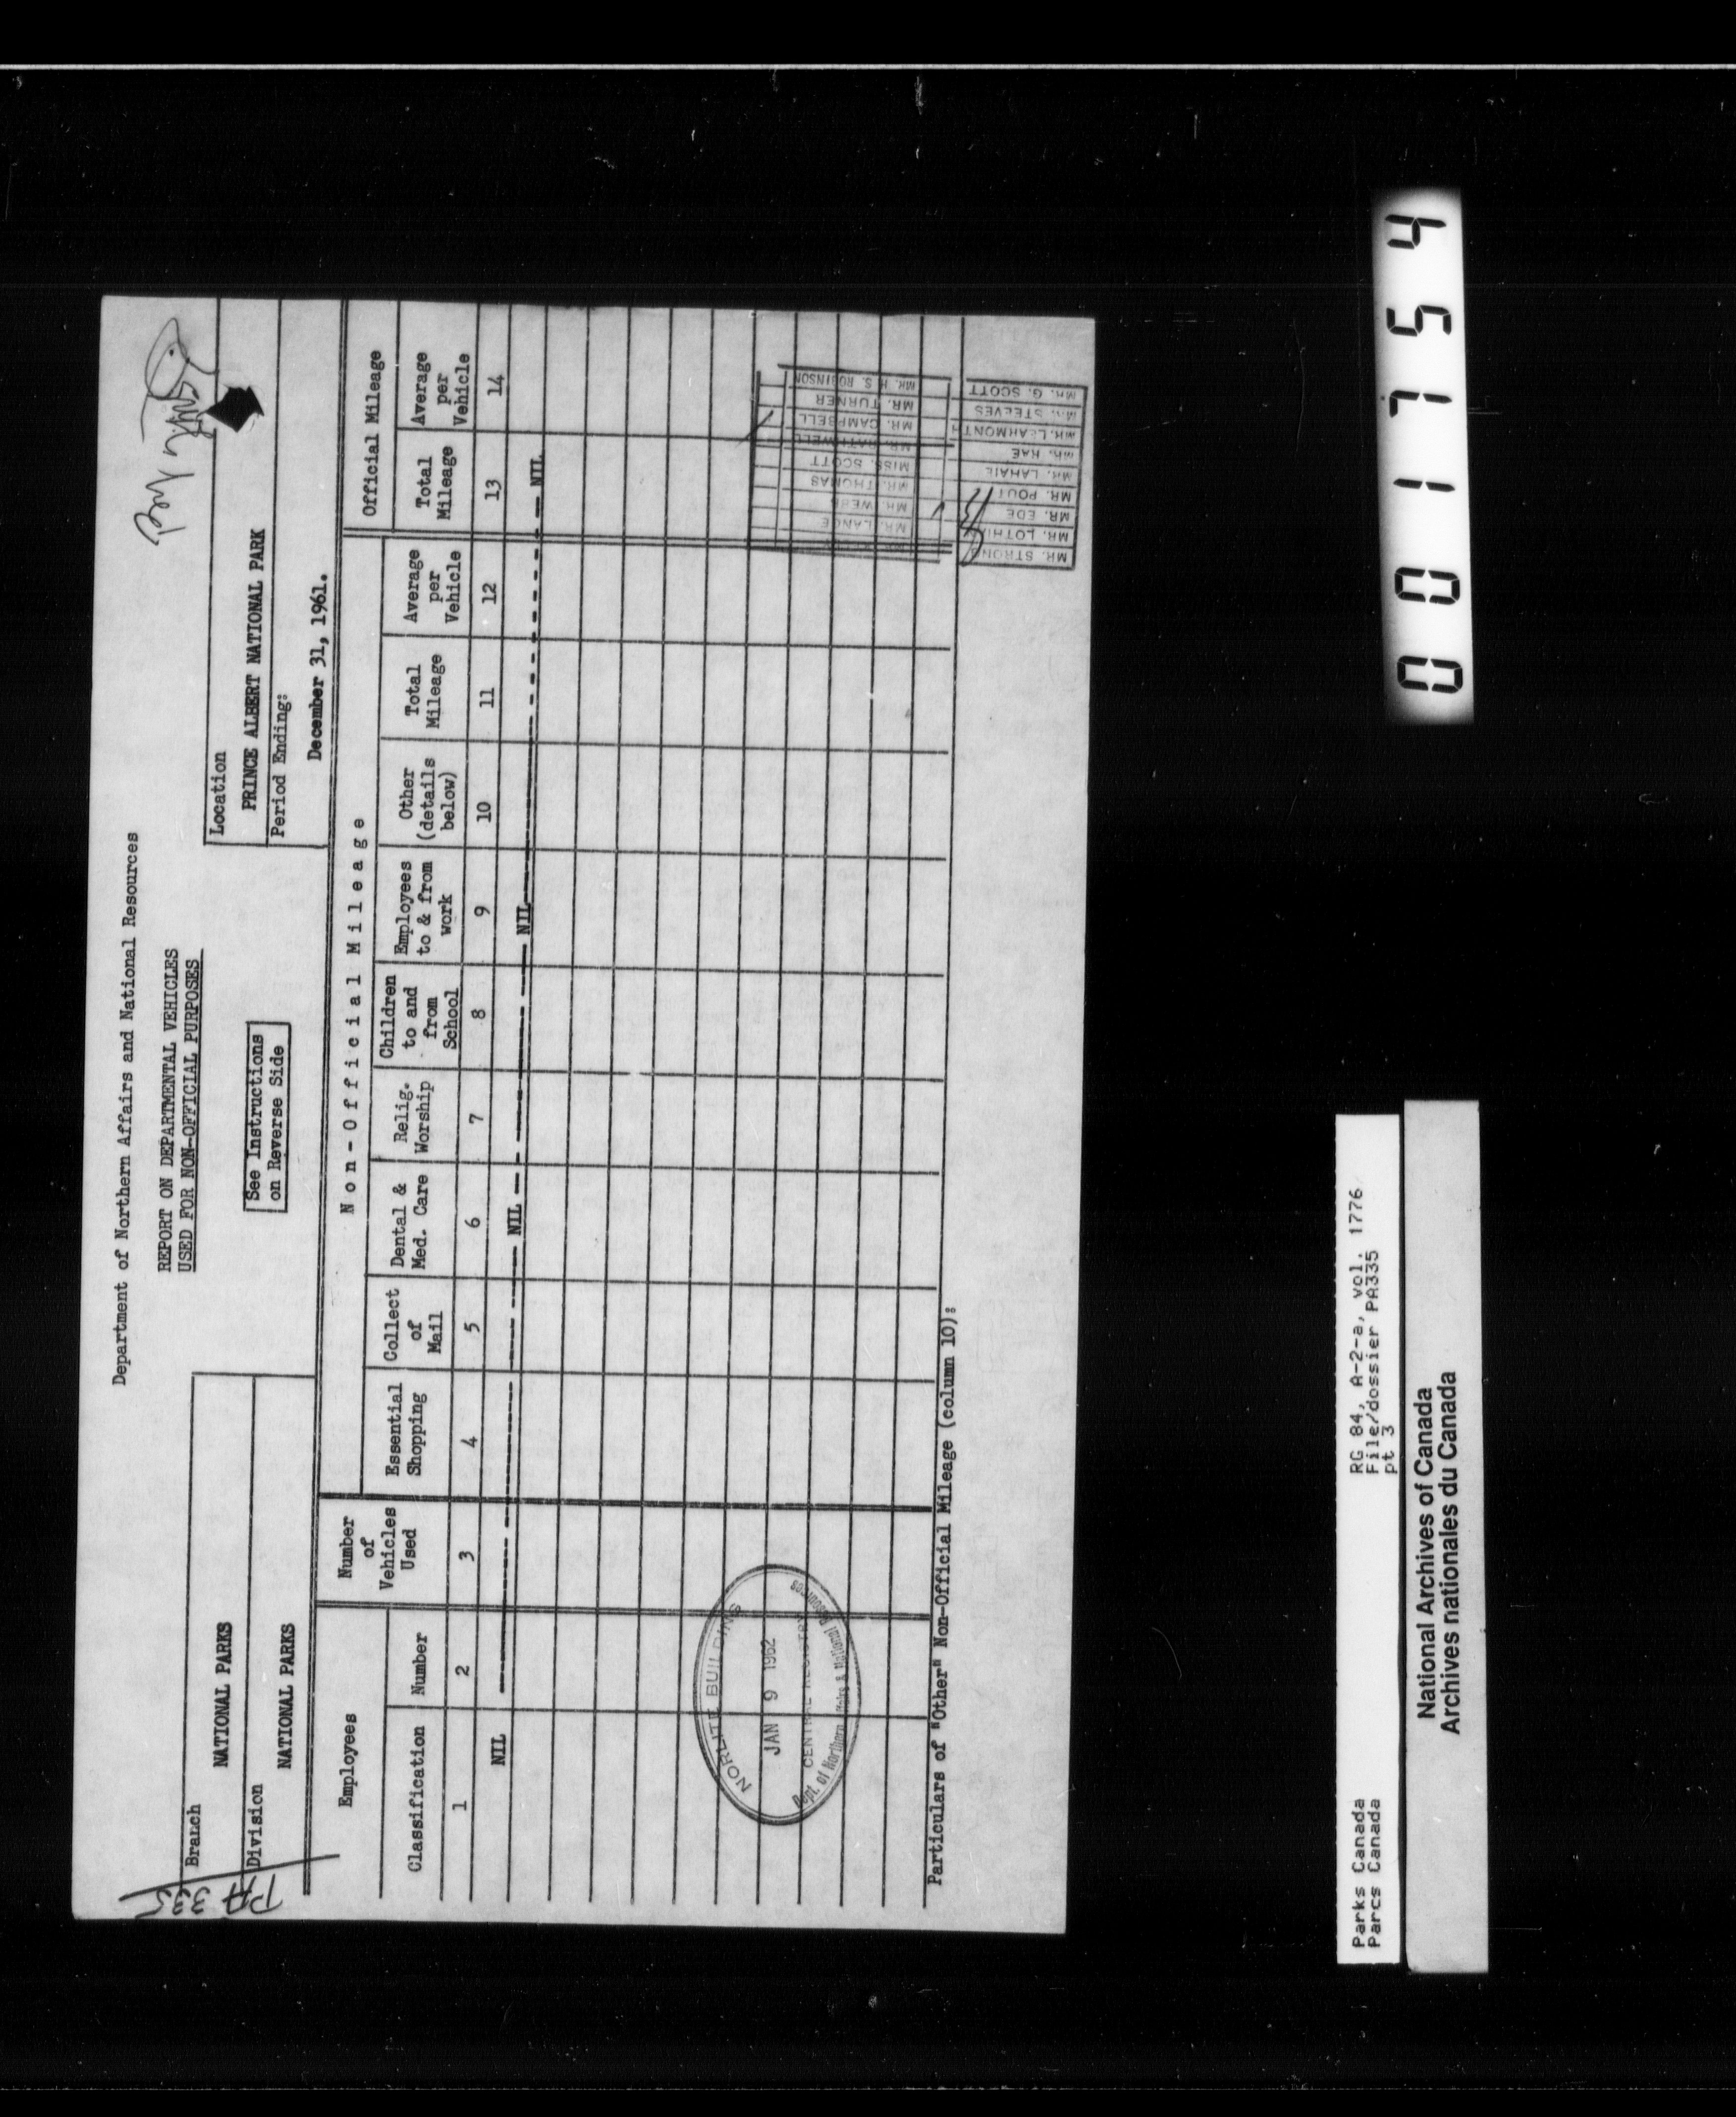 Department of Northern Affairs and National Resources
REPORT ON DEPARTMENTAL VEHICLES
USED FOR NON-OFFICIAL PURPOSES
See Instructions
on Reverse Side
PA
335
Branch
NATIONAL PARKS
Division
NATIONAL PARKS
Location
PRINCE ALBERT NATIONAL PARK
Period Ending:
December 31, 1961.
Employees
Number
of
Vehicles
Used
Non-Official Mileage
Official Mileage
Classification
Number
Essential
Shopping
Collect
of
Mail
Dental &
Med. Care
Relig.
Worship
Children
to and
from
School
Employees
to & from
work
Other
(details
below)
Total
Mileage
Average
per
Vehicle
Total
Mileage
Average
per
Vehicle
1 2 3 4 5 6 7 8 9 10 11 12 13 14
NIL NIL NIL NIL
NORLITE BUILDING
JAN 9 1962
CENTRAL REGISTRY
Dept. of Northern Affairs & National Resources
MR. LANGE
MR. WEBB
MR. THOMAS
MISS. SCOTT
MR. CAMPBELL
MR. TURNER
MR. H. S. ROBINSON
MR. STRONG
MR. LOTHIAN
MR. EDE
MR. POUT
MR. LAHAIE
MR. RAE
MR. LEARMONTH
MR. STEEVES
MR. G. SCOTT
Particulars of "Other" Non-Official Mileage (column 10):
001754
Parks Canada
Parcs Canada
RG 84, A-2-a, vol. 1776
File/dossier PA335
pt 3
National Archives of Canada
Archives nationales du Canada